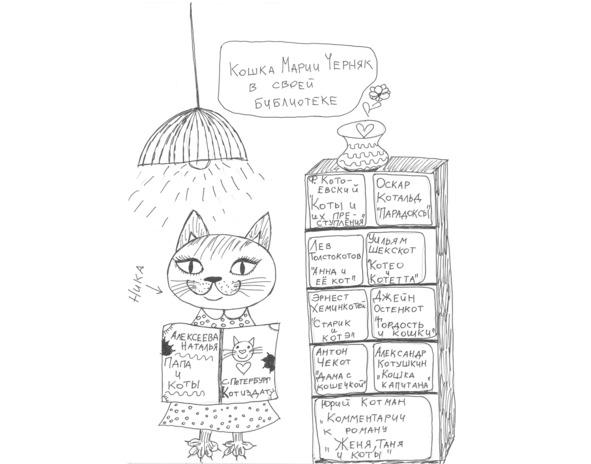 Кошка Марии Черняк
в своей
библиотеке
Ника
Алексеева
Наталья
Папа
и
коты
С.Петербург
Котиздат
Ф. Кото-
евский
"Коты и
их пре-
ступления"
Оскар
Котальд
"Парадоксы"
Лев
Толстокотов
"Анна и
её кот"
Уильям
Шекскот
"Котео
и
Котетта"
Эрнест
Хеминкотей
"Старик
и
котэ"
Джейн
Остенкот
"Гордость
и кошки"
Антон
Чекот
"Дама с
кошечкой"
Александр
Котушкин
"Кошка
капитана"
Юрий Котман
"Комментарии
к роману
"Женя, Таня
и коты"